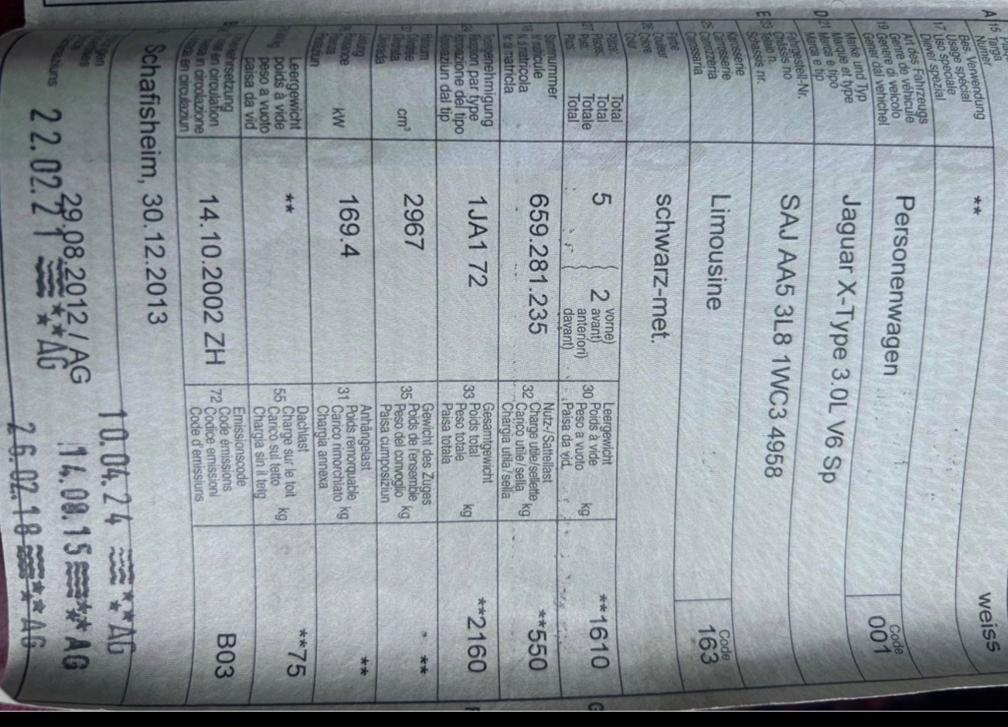 Bes. Verwendung
Usage spécial
Uso speciale
Diever spezial
**
weiss
Art des Fahrzeugs
Genre de véhicule
Genere di veicolo
Gener dal vehichel
Personenwagen
Code
001
Marke und Typ
Marque et type
Marca e tipo
Marca e tip
Jaguar X-Type 3.0L V6 Sp
Fahrgestell-Nr.
Châssis no
Telaio n.
Schassis nr.
SAJ AA5 3L8 1WC3 4958
Karosserie
Carrosserie
Carrozzeria
Carrossaria
Limousine
Code
163
Farbe
Couleur
Colore
Colur
schwarz-met.
Total
Total
Totale
Total
5
2
vorne)
avant)
anteriori)
davant)
30
Leergewicht
Poids à vide
Peso a vuoto
Paisa da vid
kg
**1610
Stammnummer
N° matricule
N. di matricola
Nr. da matricla
659.281.235
32
Nutz-/Sattellast
Charge utile/sellette
Carico utile/sella
Chargia utila/sella
kg
**550
Typengenehmigung
Réception par type
Approvazione del tipo
Approvaziun dal tip
1JA1 72
33
Gesamtgewicht
Poids total
Peso totale
Paisa totala
kg
**2160
cm³
2967
35
Gewicht des Zuges
Poids de l'ensemble
Peso del convoglio
Paisa cumposiziun
kg
**
kW
169.4
31
Anhängelast
Poids remorquable
Carico rimorchiato
Chargia annexa
kg
**
Leergewicht
poids à vide
peso a vuoto
paisa da vid
**
55
Dachlast
Charge sur le toit
Carico sul tetto
Chargia sin il tetg
kg
**75
14.10.2002 ZH
72
Emissionscode
Code émissions
Codice emissioni
Code d'emissiuns
B03
Schafisheim, 30.12.2013
10.04.24 **AG
29.08.2012 / AG
14.08.15 ** AG
22.02.21 **AG
26.02.18 **AG